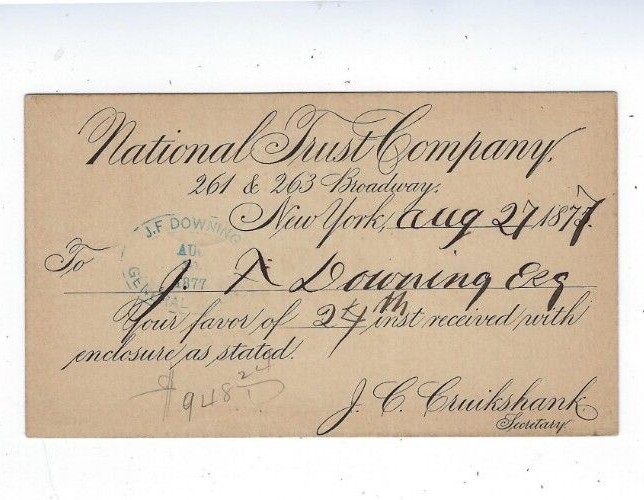 National Trust Company.
261 & 263 Broadway.
New York, Aug 27 1877.
J.F DOWNING
AU
1877
GENERAL
To J F Downing Esq
Your favor of 24th inst received with
enclosure as stated.
$948 24
J. C. Cruikshank
Secretary.